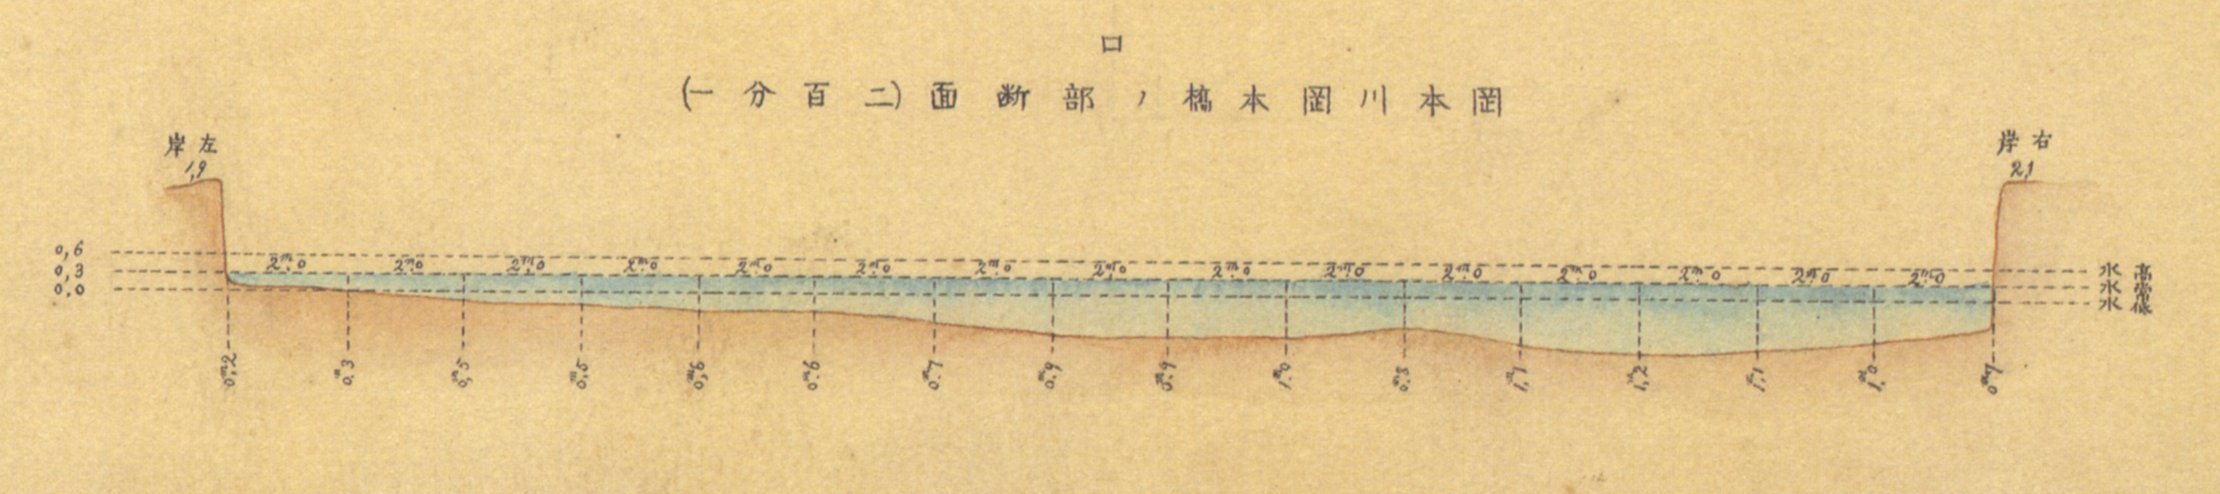 ロ
岡本川岡本橋ノ部断面(二百分一)
左岸
1,9
右岸
2,1
0,6
0,3
0,0
2m.0 2m.0 2m.0 2m.0 2m.0 2m.0 2m.0 2m.0 2m.0 2m.0 2m.0 2m.0 2m.0 2m.0 2m.0
高水
常水
低水
0m.2 0m.3 0m.5 0m.5 0m.6 0m.6 0m.7 0m.9 0m.9 1m.0 0m.8 1m.1 1m.2 1m.1 1m.0 0m.7